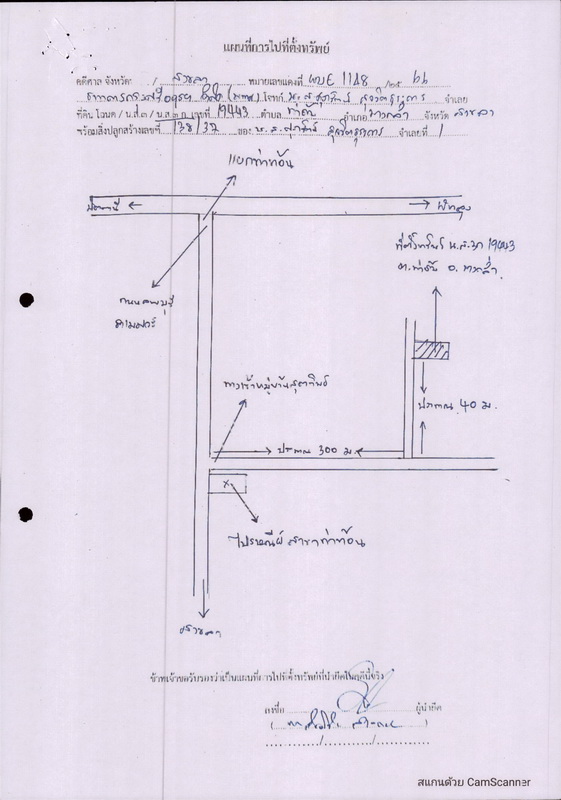 แผนที่การไปที่ตั้งทรัพย์
คดีศาล จังหวัด สงขลา หมายเลขแดงที่ ผบE 1148 /25 66
ธนาคารกรุงศรีอยุธยา จำกัด (มหาชน) โจทก์ จำเลย
ที่ดิน โฉนด / น.ส.3 / น.ส.3 ก. เลขที่ 19443 ตำบล อำเภอ จังหวัด สงขลา
พร้อมสิ่งปลูกสร้างเลขที่ 138/37 ของ น.ส. จำเลยที่ 1
แยกท่าท้อน
ปัตตานี
พัทลุง
ที่ตั้งทรัพย์ น.ส.3ก 19443
ถนนลพบุรี
ราเมศวร์
ทางเข้าหมู่บ้าน
ประมาณ 40 ม.
ประมาณ 300 ม.
ไปรษณีย์ สาขาท่าท้อน
สงขลา
ข้าพเจ้าขอรับรองว่าเป็นแผนที่การไปที่ตั้งทรัพย์ที่นำยึดในคดีนี้จริง
ลงชื่อ ผู้นำยึด
สแกนด้วย CamScanner